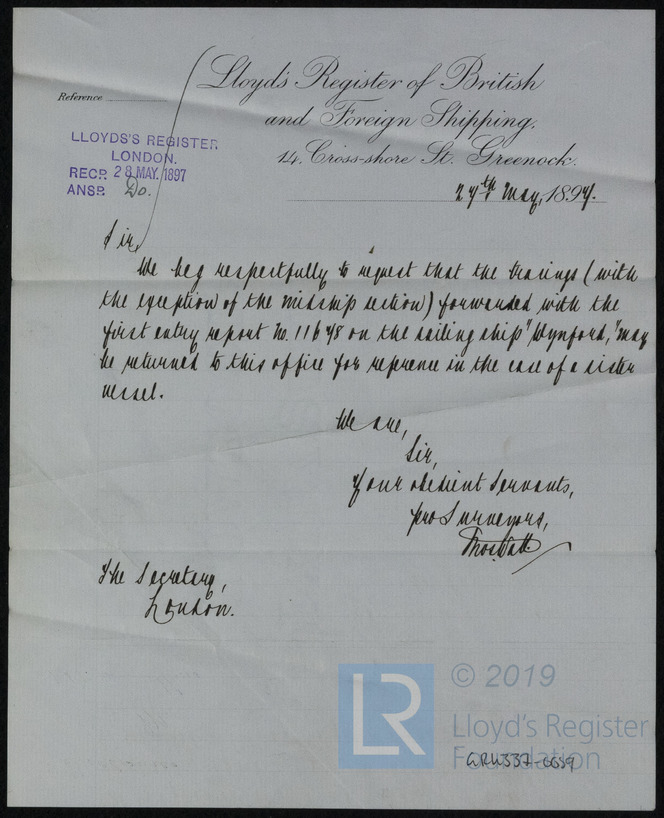 Reference
Lloyd's Register of British
and Foreign Shipping.
14, Cross-shore St. Greenock.
LLOYDS'S REGISTER
LONDON.
RECD. 28 MAY. 1897
ANSD. Do.
27th May, 1897.
Sir,
We beg respectfully to request that the tracings (with
the exception of the midship section) forwarded with the
first entry report No. 11648 on the sailing ship "Wynford," may
be returned to this office for reference in the case of a sister
vessel.
We are,
Sir,
Your obedient Servants,
pro Surveyors,
The Secretary,
London.
LR
© 2019
Lloyd's Register
Foundation